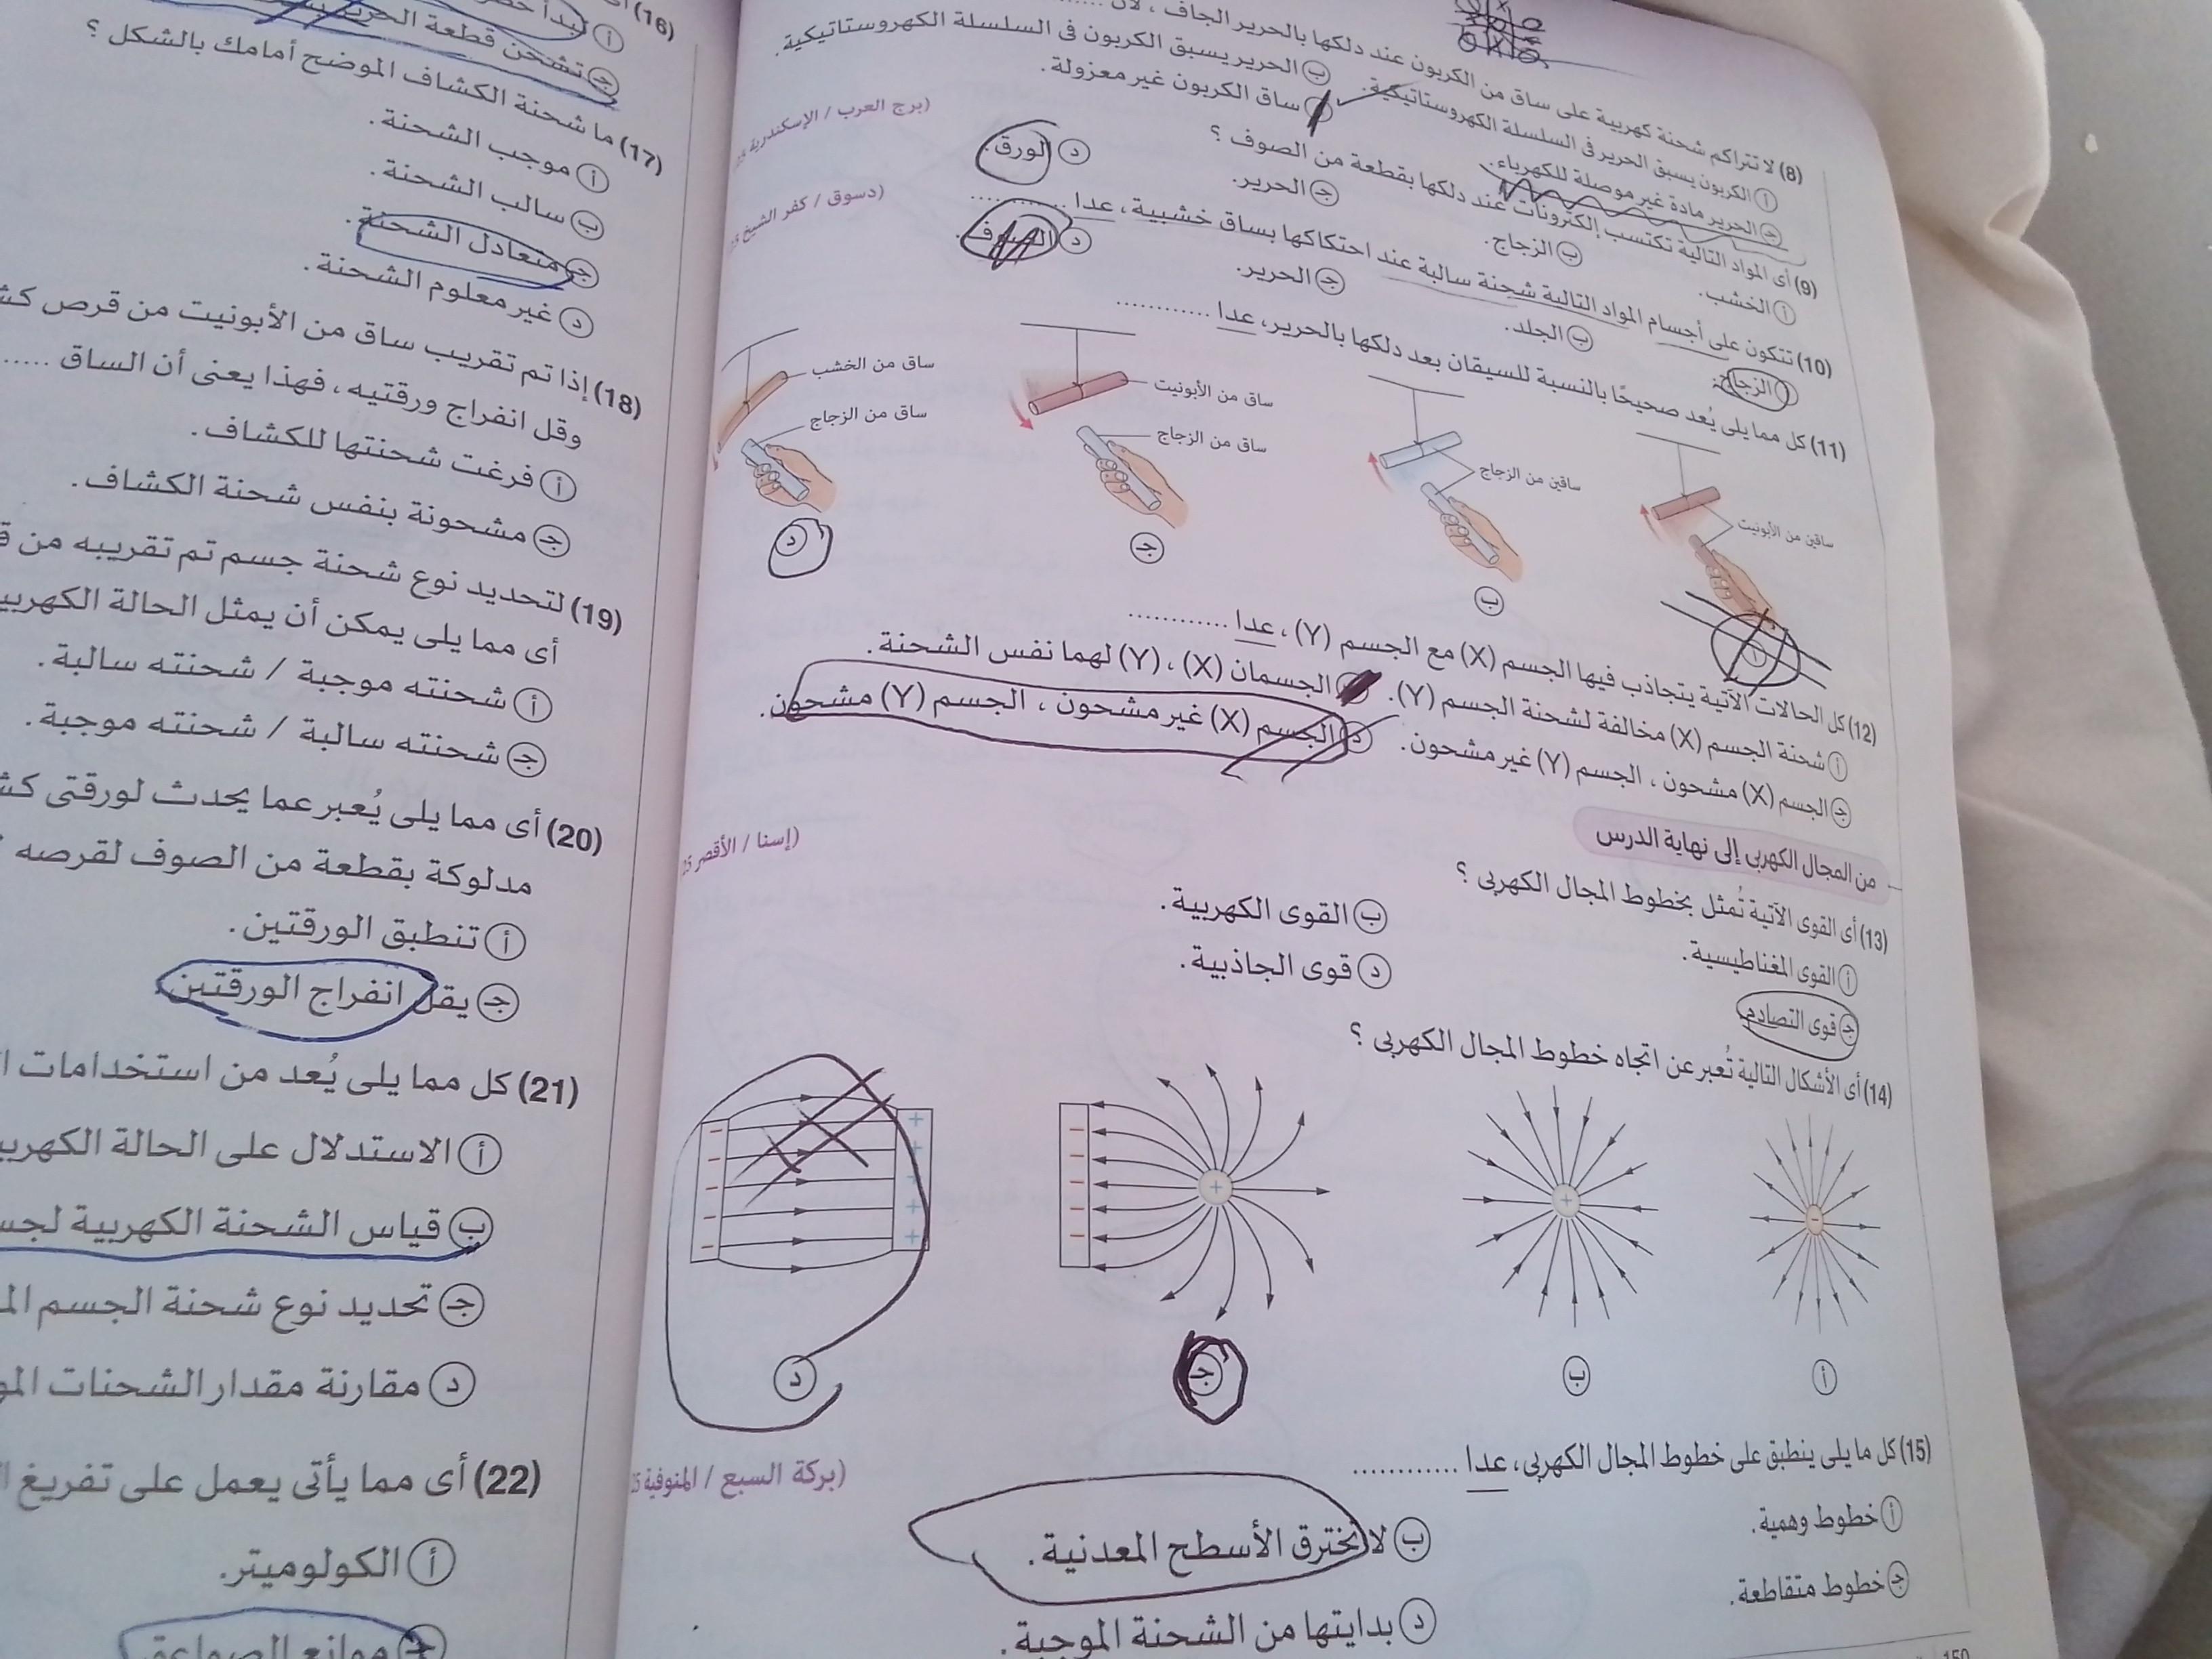 (8) لا تتراكم شحنة كهربية على ساق من الكربون عند دلكها بالحرير الجاف ، لأن ............
أ الكربون يسبق الحرير فى السلسلة الكهروستاتيكية.
ب الحرير يسبق الكربون فى السلسلة الكهروستاتيكية.
جـ الحرير مادة غير موصلة للكهرباء.
ساق الكربون غير معزولة.
(9) أى المواد التالية تكتسب إلكترونات عند دلكها بقطعة من الصوف ؟
(برج العرب / الإسكندرية
أ الخشب.
ب الزجاج.
جـ الحرير.
د الورق.
(10) تتكون على أجسام المواد التالية شحنة سالبة عند احتكاكها بساق خشبية، عدا ............
(دسوق / كفر الشيخ
أ الزجاج.
ب الجلد.
جـ الحرير.
د الصوف.
(11) كل مما يلى يُعد صحيحًا بالنسبة للسيقان بعد دلكها بالحرير، عدا ............
ساقين من الأبونيت
أ
ساقين من الزجاج
ب
ساق من الأبونيت
ساق من الزجاج
جـ
ساق من الخشب
ساق من الزجاج
د
(12) كل الحالات الآتية يتجاذب فيها الجسم (X) مع الجسم (Y)، عدا ............
أ شحنة الجسم (X) مخالفة لشحنة الجسم (Y).
الجسمان (X) ، (Y) لهما نفس الشحنة.
جـ الجسم (X) مشحون ، الجسم (Y) غير مشحون.
د الجسم (X) غير مشحون ، الجسم (Y) مشحون.
من المجال الكهربى إلى نهاية الدرس
(13) أى القوى الآتية تُمثل بخطوط المجال الكهربى ؟
(إسنا / الأقصر
أ القوى المغناطيسية.
ب القوى الكهربية.
جـ قوى التصادم.
د قوى الجاذبية.
(14) أى الأشكال التالية تُعبر عن اتجاه خطوط المجال الكهربى ؟
أ
ب
جـ
د
(15) كل ما يلى ينطبق على خطوط المجال الكهربى، عدا ............
(بركة السبع / المنوفية
أ خطوط وهمية.
ب لا تخترق الأسطح المعدنية.
جـ خطوط متقاطعة.
د بدايتها من الشحنة الموجبة.
(16)
جـ تشحن قطعة الحرير
(17) ما شحنة الكشاف الموضح أمامك بالشكل ؟
أ موجب الشحنة.
ب سالب الشحنة.
جـ متعادل الشحنة.
د غير معلوم الشحنة.
(18) إذا تم تقريب ساق من الأبونيت من قرص
وقل انفراج ورقتيه ، فهذا يعنى أن الساق ......
أ فرغت شحنتها للكشاف.
جـ مشحونة بنفس شحنة الكشاف.
(19) لتحديد نوع شحنة جسم تم تقريبه من
أى مما يلى يمكن أن يمثل الحالة
أ شحنته موجبة / شحنته سالبة.
جـ شحنته سالبة / شحنته موجبة.
(20) أى مما يلى يُعبر عما يحدث لورقتى
مدلوكة بقطعة من الصوف لقرصه
أ تنطبق الورقتين.
جـ يقل انفراج الورقتين.
(21) كل مما يلى يُعد من استخدامات
أ الاستدلال على الحالة
ب قياس الشحنة الكهربية
جـ تحديد نوع شحنة الجسم
د مقارنة مقدار الشحنات
(22) أى مما يأتى يعمل على تفريغ
أ الكولوميتر.
جـ موانع الصواعق.